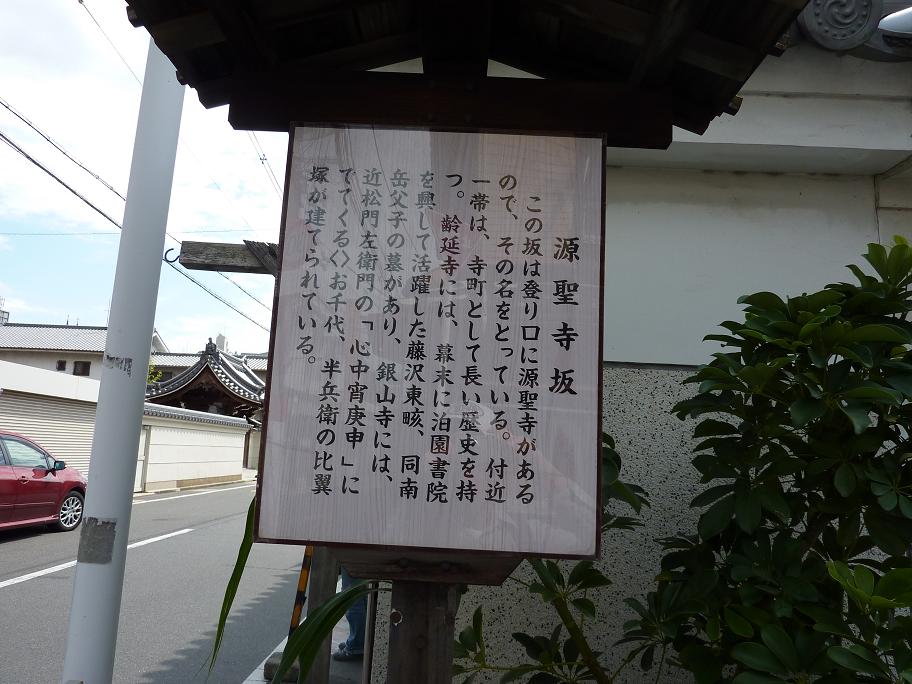 源聖寺坂
この坂は登り口に源聖寺がある
ので、その名をとっている。付近
一帯は、寺町として長い歴史を持
つ。齢延寺には、幕末に泊園書院
を興して活躍した藤沢東畡、同南
岳父子の墓があり、銀山寺には、
近松門左衛門の「心中宵庚申」に
でてくるく〉お千代、半兵衛の比翼
塚が建てられている。